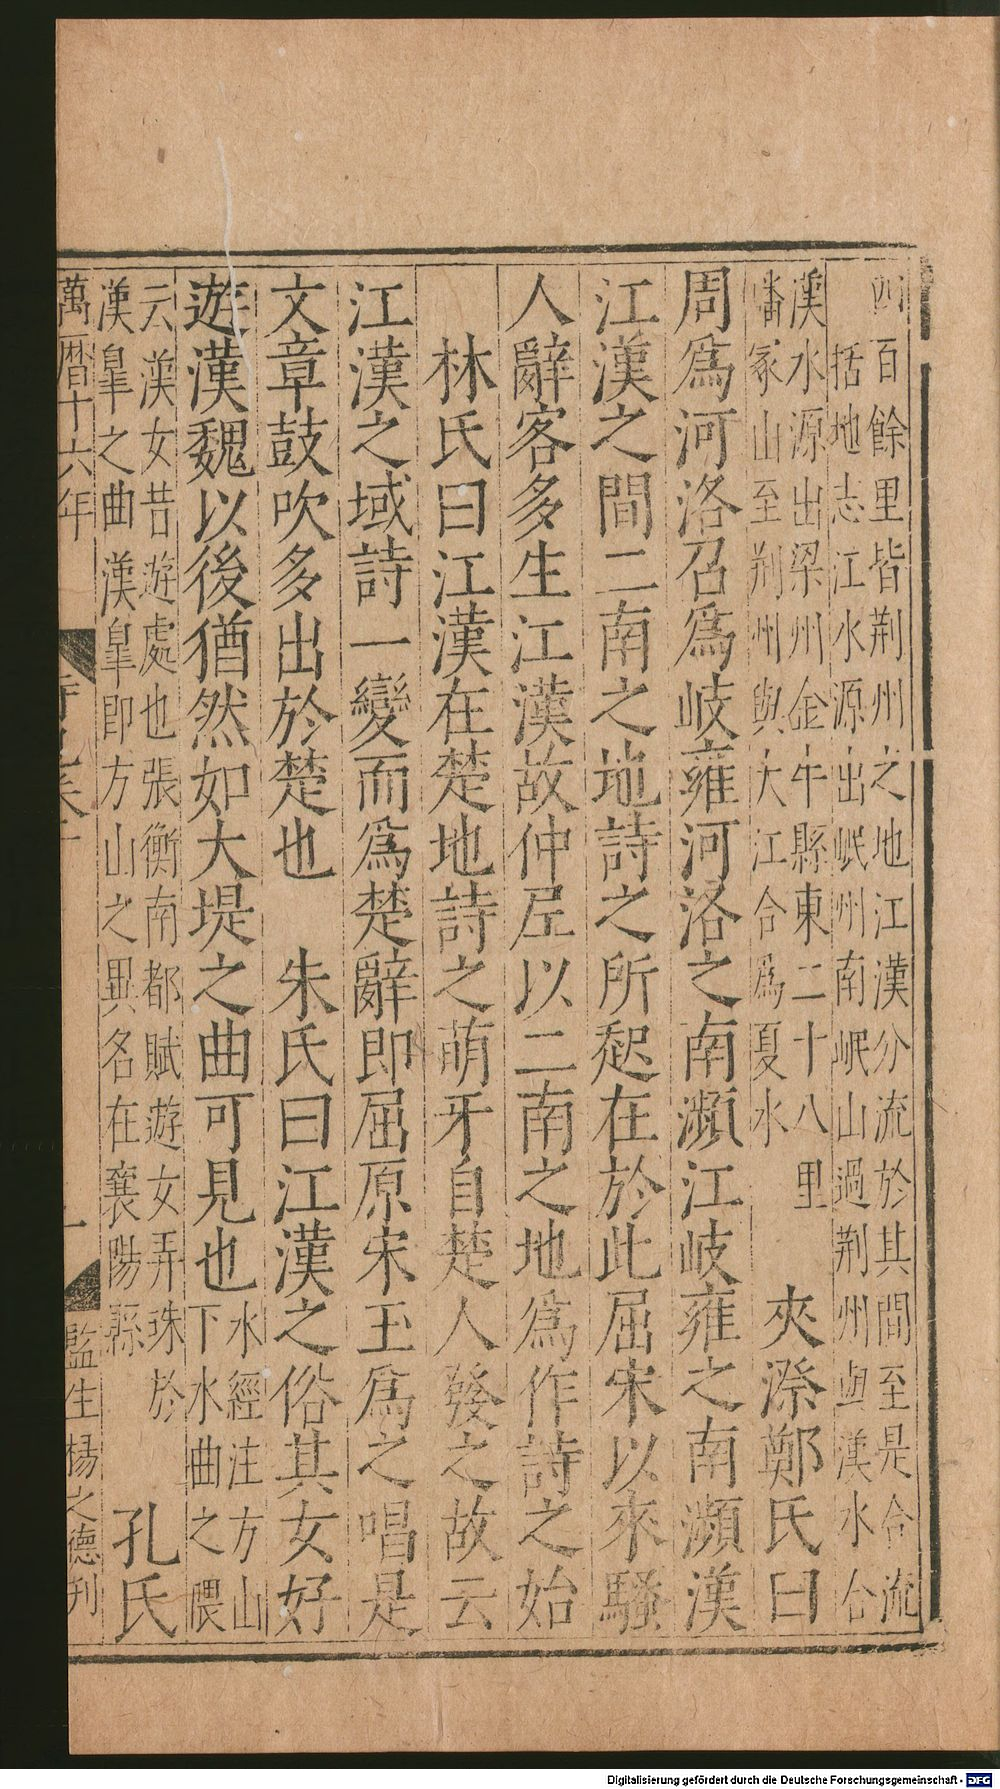 四百餘里皆荆州之地江漢分流於其間至是合流
括地志江水源出岷州南岷山過荆州與漢水合
漢水源出梁州金牛縣東二十八里
嶓冢山至荆州與大江合爲夏水
夾漈鄭氏曰
周爲河洛召爲岐雍河洛之南瀕江岐雍之南瀕漢
江漢之間二南之地詩之所起在於此屈宋以來騷
人辭客多生江漢故仲尼以二南之地爲作詩之始
林氏曰江漢在楚地詩之萌牙自楚人發之故云
江漢之域詩一變而爲楚辭即屈原宋玉爲之唱是
文章鼓吹多出於楚也 朱氏曰江漢之俗其女好
遊漢魏以後猶然如大堤之曲可見也
水經注方山
下水曲之隈
云漢女昔遊處也張衡南都賦遊女弄珠於
漢臯之曲漢臯即方山之異名在襄陽縣
孔氏
萬曆十六年
監生楊之德刋
Digitalisierung gefördert durch die Deutsche Forschungsgemeinschaft - DFG